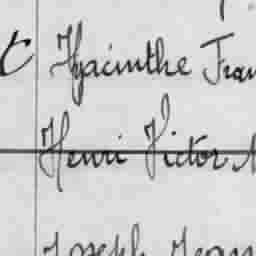 Hyacinthe Fran
Henri Victor
Joseph Jean